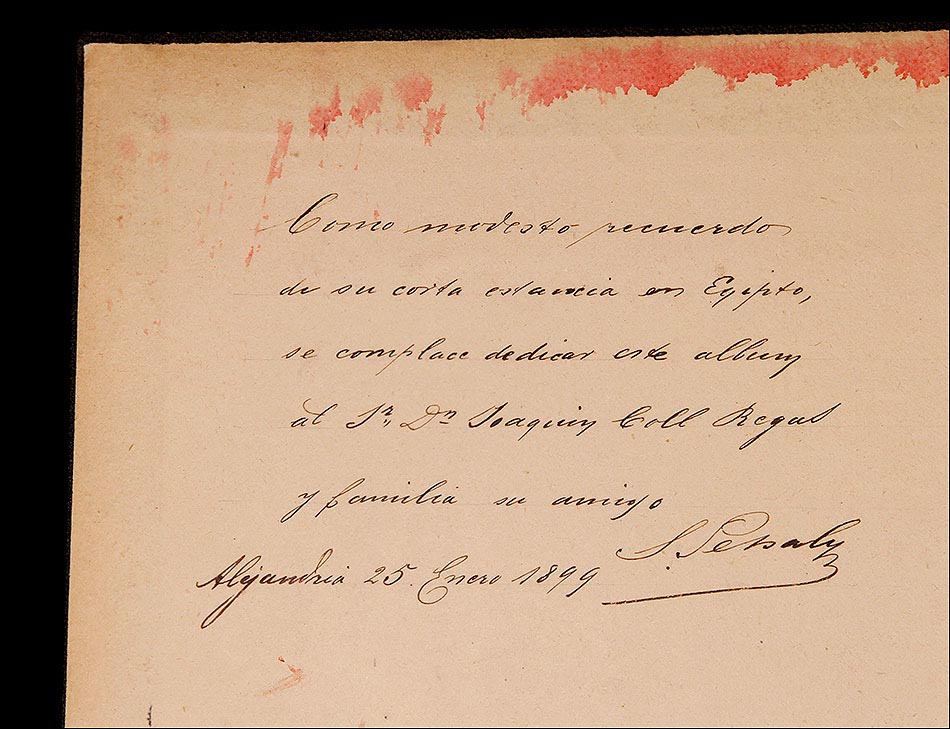 Como modesto recuerdo
de su corta estancia en Egipto,
se complace dedicar este album
al Sr. Dn Joaquin Coll Regas
y familia su amigo
S.
Alejandria 25 Enero 1899